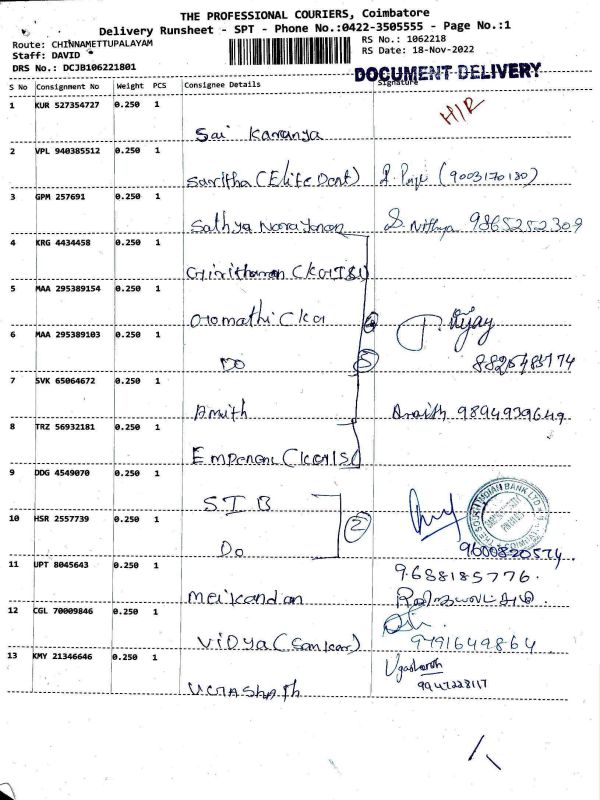 THE PROFESSIONAL COURIERS, Coimbatore
Delivery Runsheet - SPT - Phone No.:0422-3505555 - Page No.:1
Route: CHINNAMETTUPALAYAM
RS No.: 1062218
Staff: DAVID
RS Date: 18-Nov-2022
DRS No.: DCJB106221801
DOCUMENT DELIVERY
S No Consignment No Weight PCS Consignee Details Signature
1 KUR 527354727 0.250 1
H/R
Sai Karanya
2 VPL 940385512 0.250 1
Saritha (Elite Dont) (9003170130)
3 GPM 257691 0.250 1
Sathya Narayanan S. Nithya 9865252309
4 KRG 4434458 0.250 1
5 MAA 295389154 0.250 1
6 MAA 295389103 0.250 1
Vijay
Do 5
7 SVK 65064672 0.250 1
Amith 9894939649
8 TRZ 56932181 0.250 1
9 DDG 4549070 0.250 1
S I B
10 HSR 2557739 0.250 1
2
THE SOUTH INDIAN BANK LTD
Do 9600820574
11 UPT 8045643 0.250 1
9688185776.
Meikandan
12 CGL 70009846 0.250 1
Vidya (Sankar) 9791649864
13 KMY 21346646 0.250 1
Ugashnath
9947228117